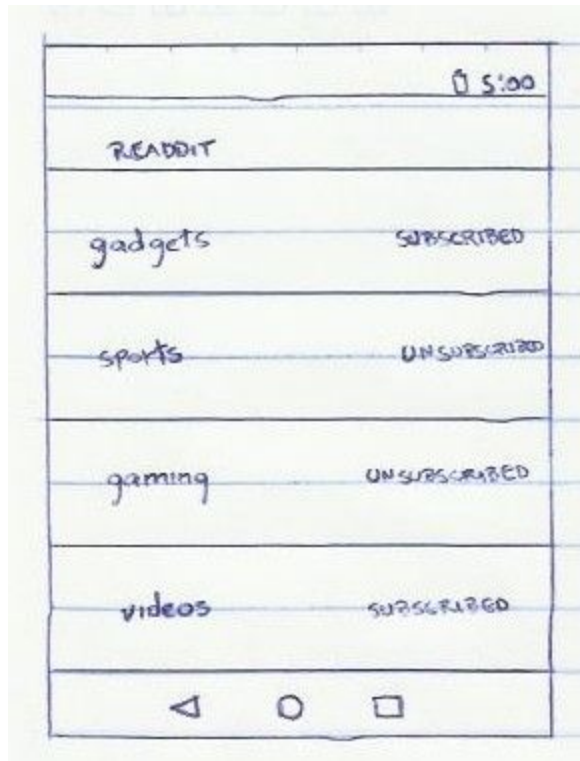 5:00
READDIT
gadgets SUBSCRIBED
sports UNSUBSCRIBED
gaming UNSUBSCRIBED
videos SUBSCRIBED